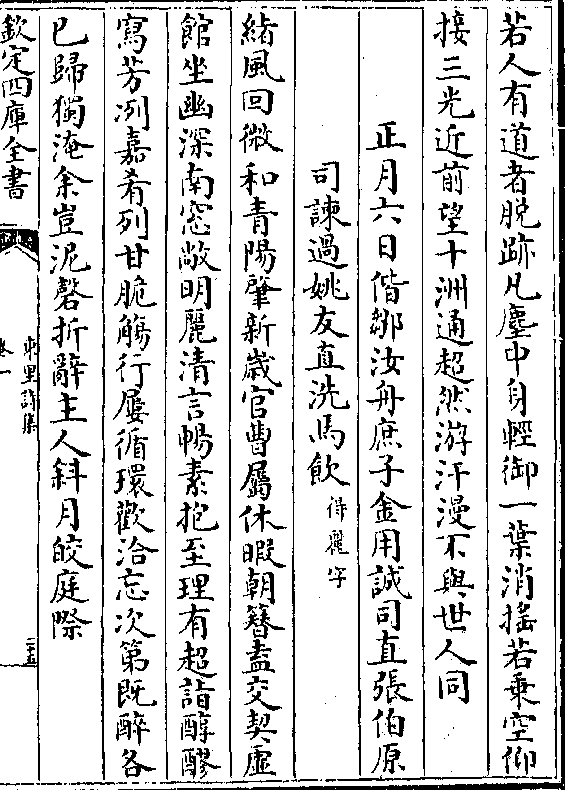 若人有道者脱跡凡塵中身輕御一葉消搖若乗空仰
接三光近前望十洲通超然游汗漫不與世人同
正月六日偕鄒汝舟庶子金用誠司直張伯原
司諫過姚友直洗馬飲得麗字
緒風回微和青陽肇新歲官曹屬休暇朝簪盍交契虛
館坐幽深南窓敞明麗清言暢素抱至理有超詣醇醪
寫芳冽嘉肴列甘脆觴行屢循環歡洽忘次第既醉各
已歸獨淹余豈泥磬折辭主人斜月皎庭際
欽定四庫全書
東里詩集
卷一